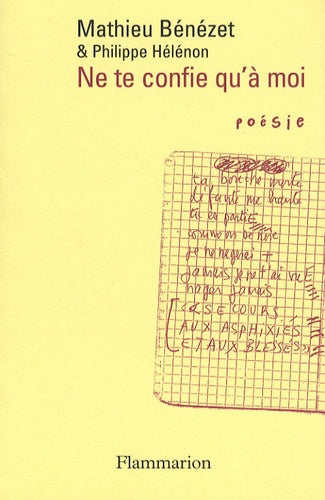 Mathieu Bénézet
& Philippe Hélénon
Ne te confie qu'à moi
poésie
ta bouche morte
le faute me hante
tu es partiE
comme on se noie
je ne nagerai +
jamais je ne t'ai vuE
nager jamais
SECOURS
AUX ASPHIXIÉS
ET AUX BLESSÉS
Flammarion